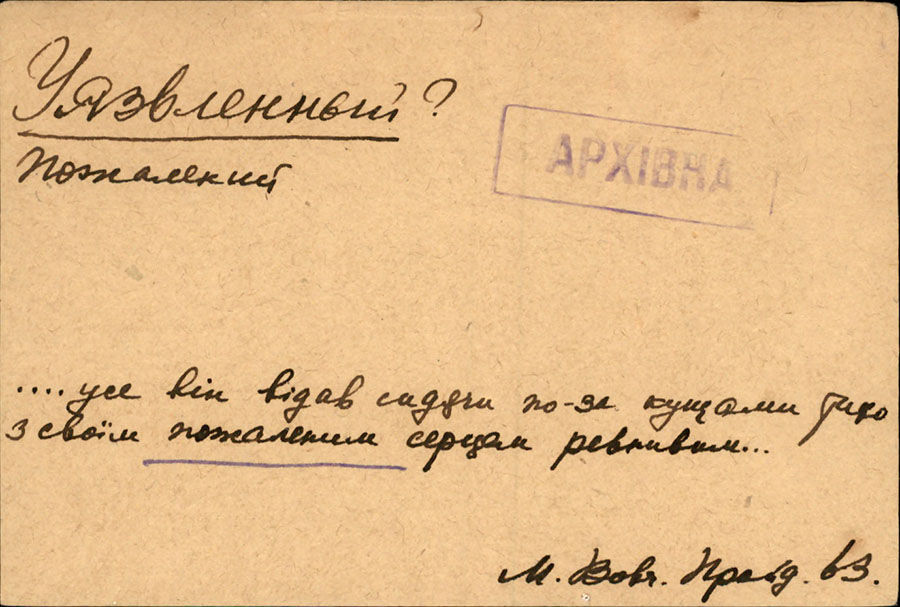 Уязвленный?
АРХІВНА
пожалений
.... усе він відав сидячи по-за кущами тихо
з своїм пожаленим серцем ревнивим...
М. Вовч. Пройд. 63.